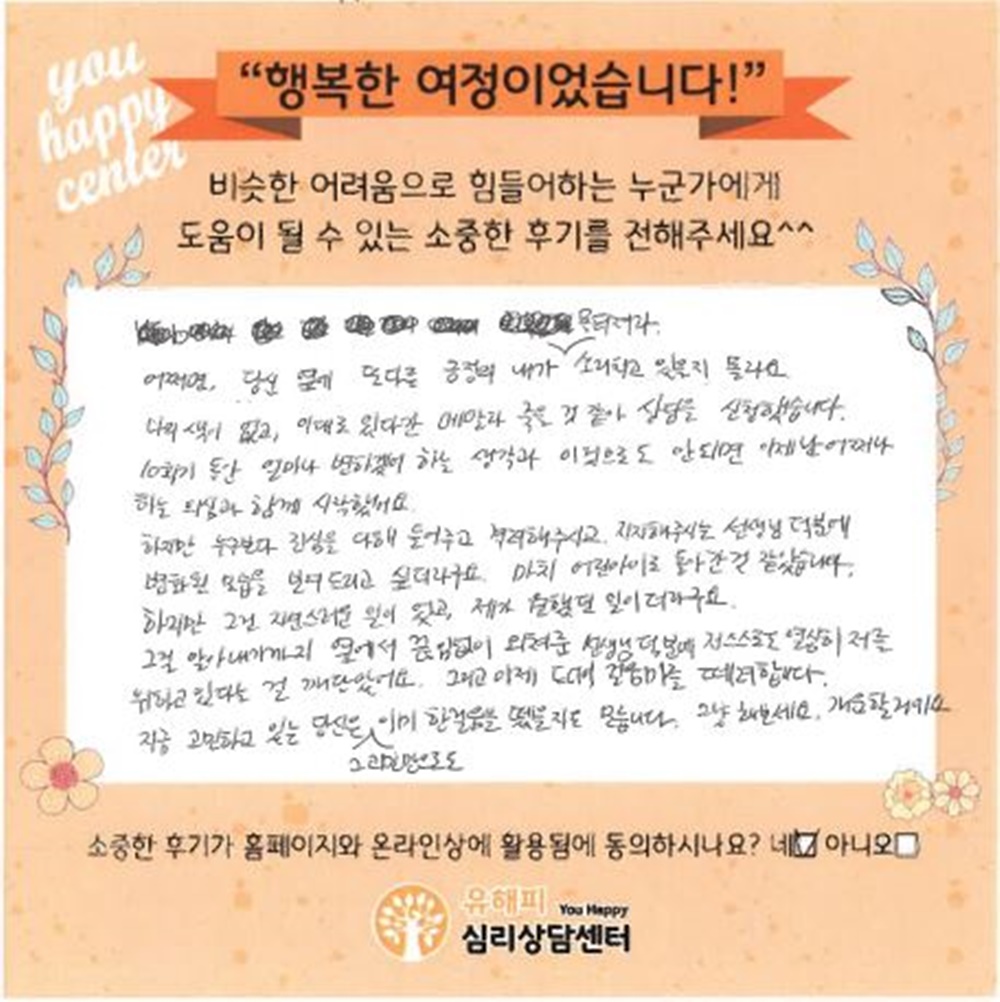 you
happy
center
“행복한 여정이었습니다!”
비슷한 어려움으로 힘들어하는 누군가에게
도움이 될 수 있는 소중한 후기를 전해주세요^^
어쩌면, 당신 옆에 또다른 긍정의 내가 소리치고 있을지 몰라요.
나의 색이 없고, 이대로 있다간 메말라 죽을 것 같아 상담을 신청했습니다.
10회기 동안 얼마나 변하겠어 하는 생각과 이것으로도 안되면 이제 난 어쩌나
하는 의심과 함께 시작했어요.
하지만 누구보다 진심을 다해 들어주고 격려해주시고, 지지해주시는 선생님 덕분에
변화된 모습을 보여 드리고 싶더라구요. 마치 어린아이로 돌아간 것 같았습니다.
하지만 그건 자연스러운 일이 었고, 제가 원했던 일이더라구요.
그걸 알아내기까지 옆에서 끊임없이 격려준 선생님 덕분에 저 스스로도 열심히 저를
위하고 있다는 걸 깨달았어요. 그리고 이제 드뎌 걸음마를 떼려합니다.
지금 고민하고 있는 당신은 이미 한걸음을 뗐을지도 모릅니다. 그냥 해보세요.
그 고민만으로도
소중한 후기가 홈페이지와 온라인상에 활용됨에 동의하시나요? 네 아니오
유해피 You Happy
심리상담센터